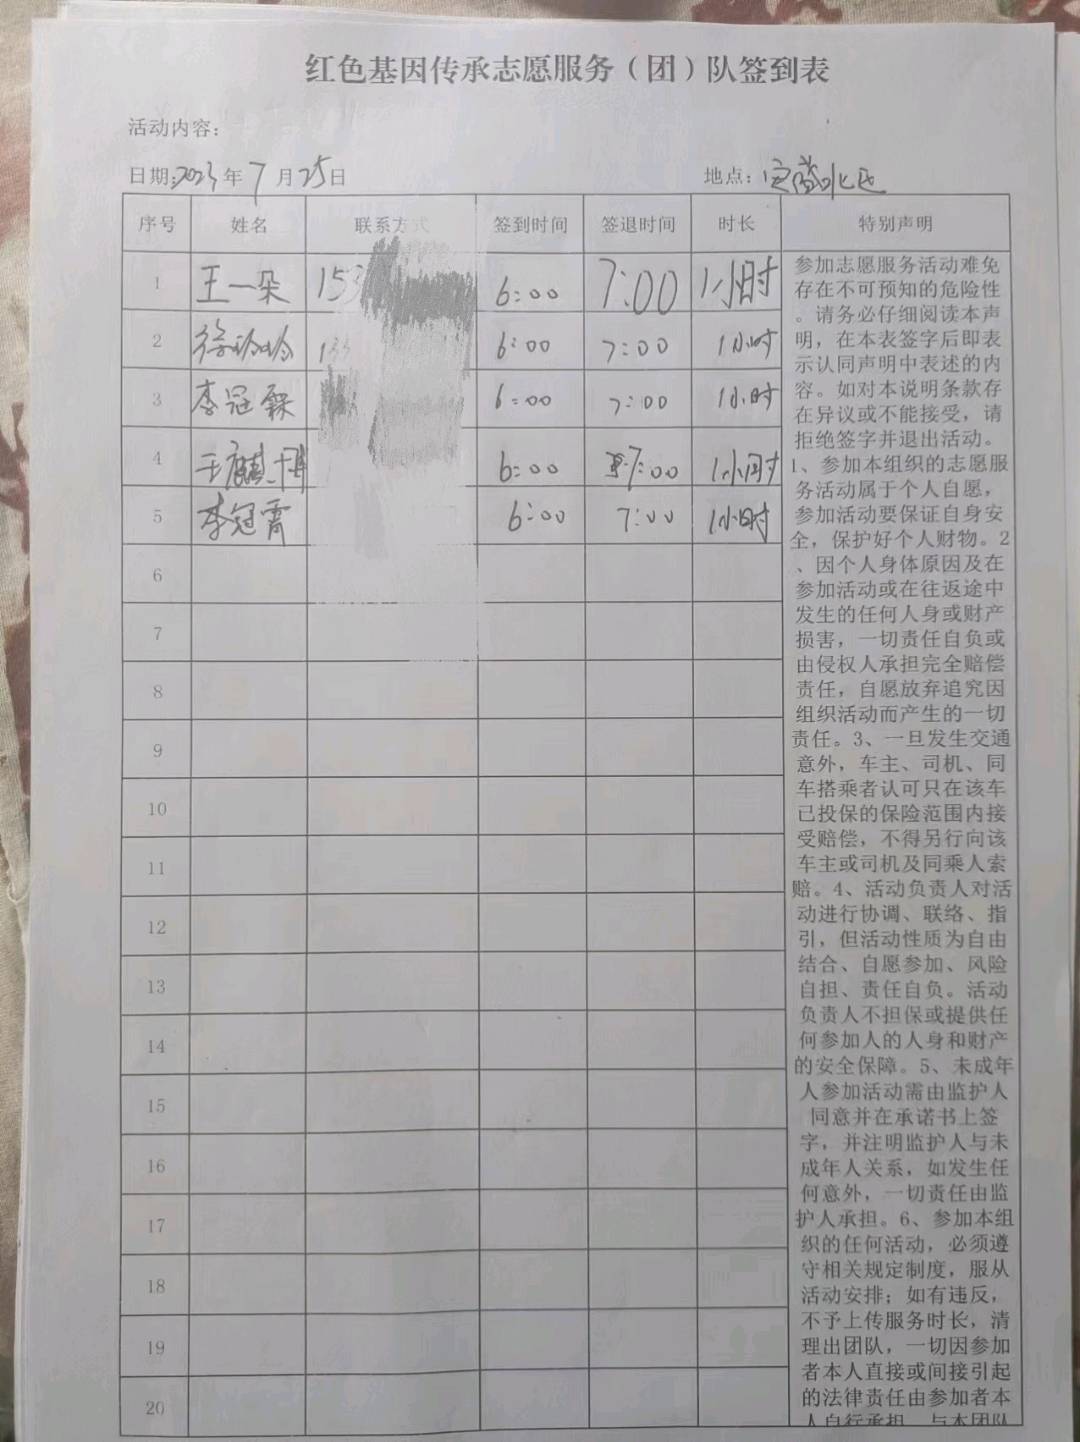 红色基因传承志愿服务（团）队签到表
活动内容：
日期：2023年7月25日 地点：
序号 姓名 联系方式 签到时间 签退时间 时长 特别声明
1 王一朵 153 6:00 7:00 1小时
2 徐玲玲 6:00 7:00 1小时
3 李冠霖 6:00 7:00 1小时
4 王麒博 6:00 7:00 1小时
5 李冠霄 6:00 7:00 1小时
6
7
8
9
10
11
12
13
14
15
16
17
18
19
20
参加志愿服务活动难免
存在不可预知的危险性
。请务必仔细阅读本声
明，在本表签字后即表
示认同声明中表述的内
容。如对本说明条款存
在异议或不能接受，请
拒绝签字并退出活动。
1、参加本组织的志愿服
务活动属于个人自愿，
参加活动要保证自身安
全，保护好个人财物。2
、因个人身体原因及在
参加活动或在往返途中
发生的任何人身或财产
损害，一切责任自负或
由侵权人承担完全赔偿
责任，自愿放弃追究因
组织活动而产生的一切
责任。3、一旦发生交通
意外，车主、司机、同
车搭乘者认可只在该车
已投保的保险范围内接
受赔偿，不得另行向该
车主或司机及同乘人索
赔。4、活动负责人对活
动进行协调、联络、指
引，但活动性质为自由
结合、自愿参加、风险
自担、责任自负。活动
负责人不担保或提供任
何参加人的人身和财产
的安全保障。5、未成年
人参加活动需由监护人
同意并在承诺书上签
字，并注明监护人与未
成年人关系，如发生任
何意外，一切责任由监
护人承担。6、参加本组
织的任何活动，必须遵
守相关规定制度，服从
活动安排；如有违反，
不予上传服务时长，清
理出团队，一切因参加
者本人直接或间接引起
的法律责任由参加者本
人自行承担，与本团队